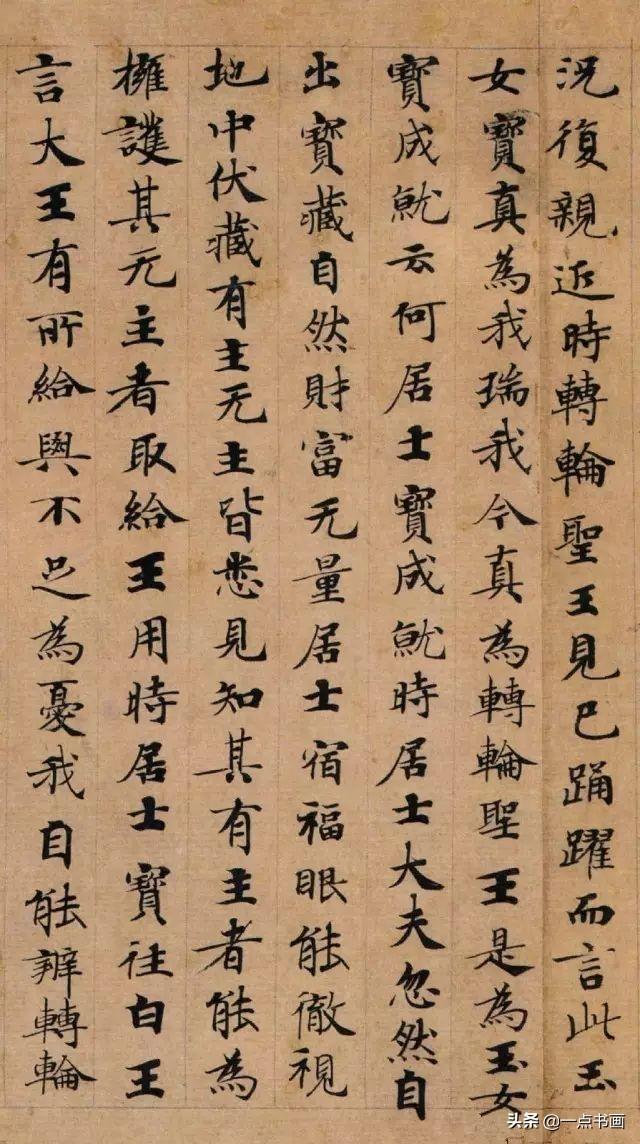 況復親近時轉輪聖王見已踊躍而言此玉
女寶真為我瑞我今真為轉輪聖王是為玉女
寶成就云何居士寶成就時居士大夫忽然自
出寶藏自然財富无量居士宿福眼能徹視
地中伏藏有主无主皆悉見知其有主者能為
擁護其无主者取給王用時居士寶往白王
言大王有所給與不足為憂我自能辦轉輪
头条 @一点书画